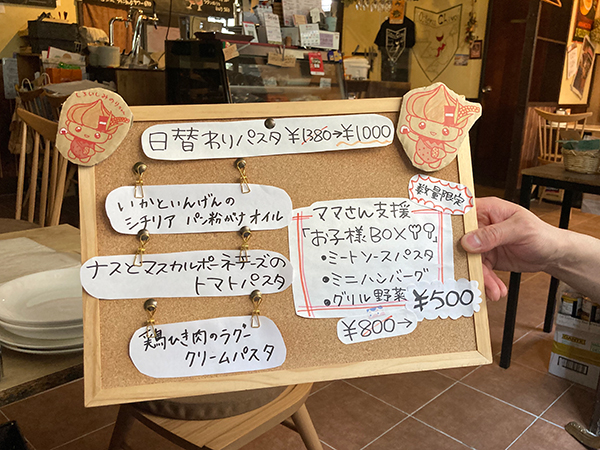 日替わりパスタ ¥1380→¥1000
いかといんげんの
シチリア パン粉がけ オイル
ナスとマスカルポーネチーズの
トマトパスタ
鶏ひき肉のラグー
クリームパスタ
数量限定
ママさん支援
「お子様BOX」
・ミートソースパスタ
・ミニハンバーグ
・グリル野菜
¥800→
¥500